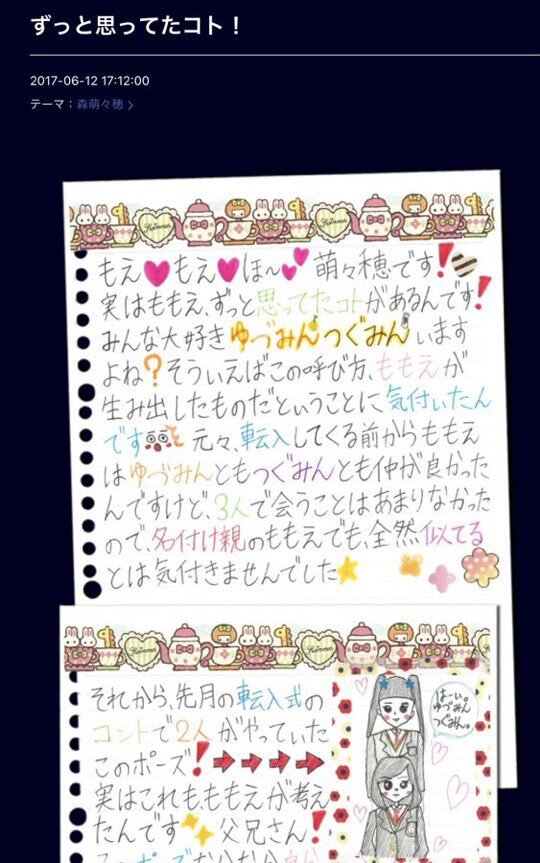 ずっと思ってたコト！
2017-06-12 17:12:00
テーマ：森萌々穂
もえ もえ ほ〜 萌々穂です！
実はももえ、ずっと思ってたコトがあるんです！
みんな大好き ゆづみん つぐみん います
よね？そういえばこの呼び方、ももえが
生み出したものだということに気付いたん
です 元々、転入してくる前からももえ
はゆづみんともつぐみんとも仲が良かった
んですけど、3人で会うことはあまりなかった
ので、名付け親のももえでも、全然似てる
とは気付きませんでした
それから、先月の転入式の
コントで2人がやっていた
このポーズ！
実はこれもももえが考え
たんです 父兄さん！
はーい。
ゆづみん
つぐみん。